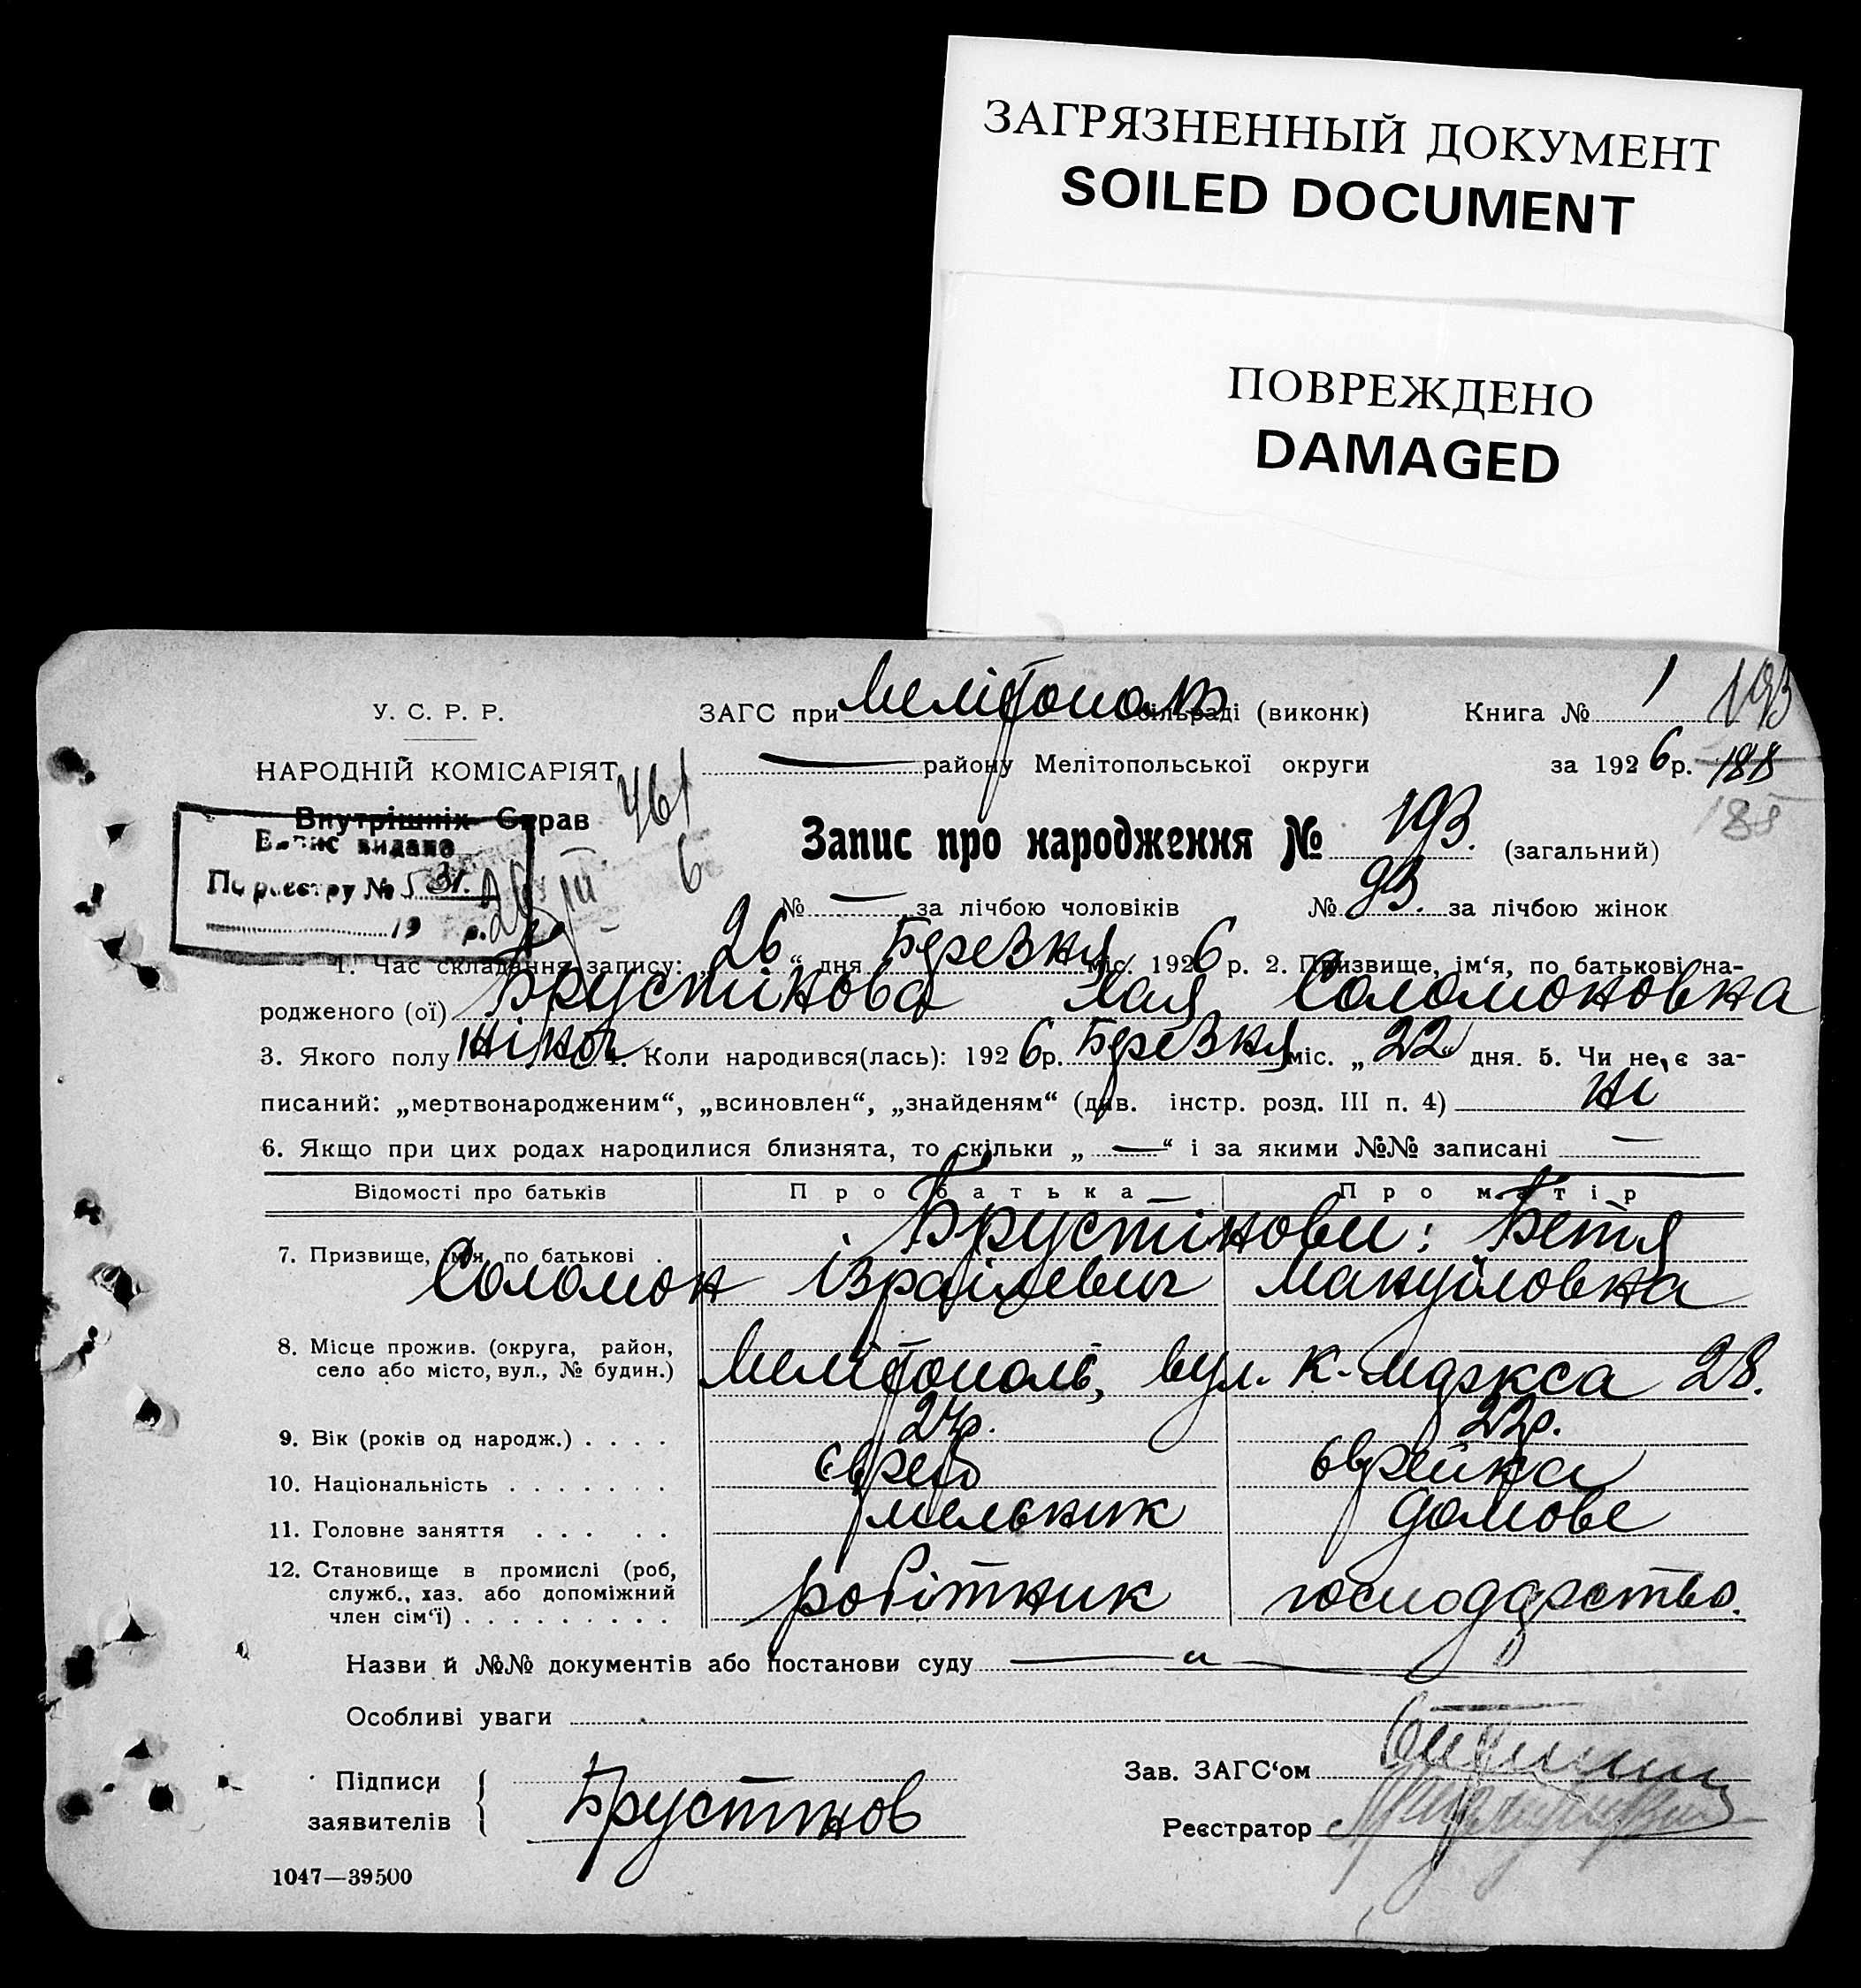 ЗАГРЯЗНЕННЫЙ ДОКУМЕНТ
SOILED DOCUMENT
ПОВРЕЖДЕНО
DAMAGED
У. С. Р. Р.
ЗАГС при Мелітополь сільраді (виконк) Книга № 1 193
НАРОДНІЙ КОМІСАРІЯТ
— району Мелітопольської округи за 1926 р. 188
Внутрішніх Справ 461 6
185
Запис про народження № 193. (загальний)
Випис видано
По реєстру № 531.
19 р. 26/III
№ — за лічбою чоловіків № 93. за лічбою жінок
1. Час складання запису: „ 26 “ дня Березня міс. 1926 р. 2. Призвище, ім‘я, по батькові на-
родженого (ої) Брустінова Хая Соломоновна
3. Якого полу жіноч 4. Коли народився(лась): 1926 р. Березня міс. „ 22 “ дня. 5. Чи не є за-
писаний: „мертвонародженим“, „всиновлен“, „знайденям“ (див. інстр. розд. III п. 4) ні
6. Якщо при цих родах народилися близнята, то скільки „ — “ і за якими №№ записані —
Відомості про батьків Про батька Про матір
Брустінови: Бетя
7. Призвище, ім‘я, по батькові .
Соломон Ізраілевич Мануіловна
8. Місце прожив. (округа, район,
село або місто, вул., № будин.) Мелітополь, вул. К-Маркса 28.
9. Вік (років од народж.) . . . . 24р. 22р.
10. Національність . . . . . . . єврей єврейка
11. Головне заняття . . . . . мельник домове
12. Становище в промислі (роб,
служб., хаз. або допоміжний
член сім‘ї) . . . . . . . . . робітник господарство.
Назви й №№ документів або постанови суду — " —
Особливі уваги
Підписи
заявителів Брустинов
Зав. ЗАГС‘ом
Реєстратор
1047—39500